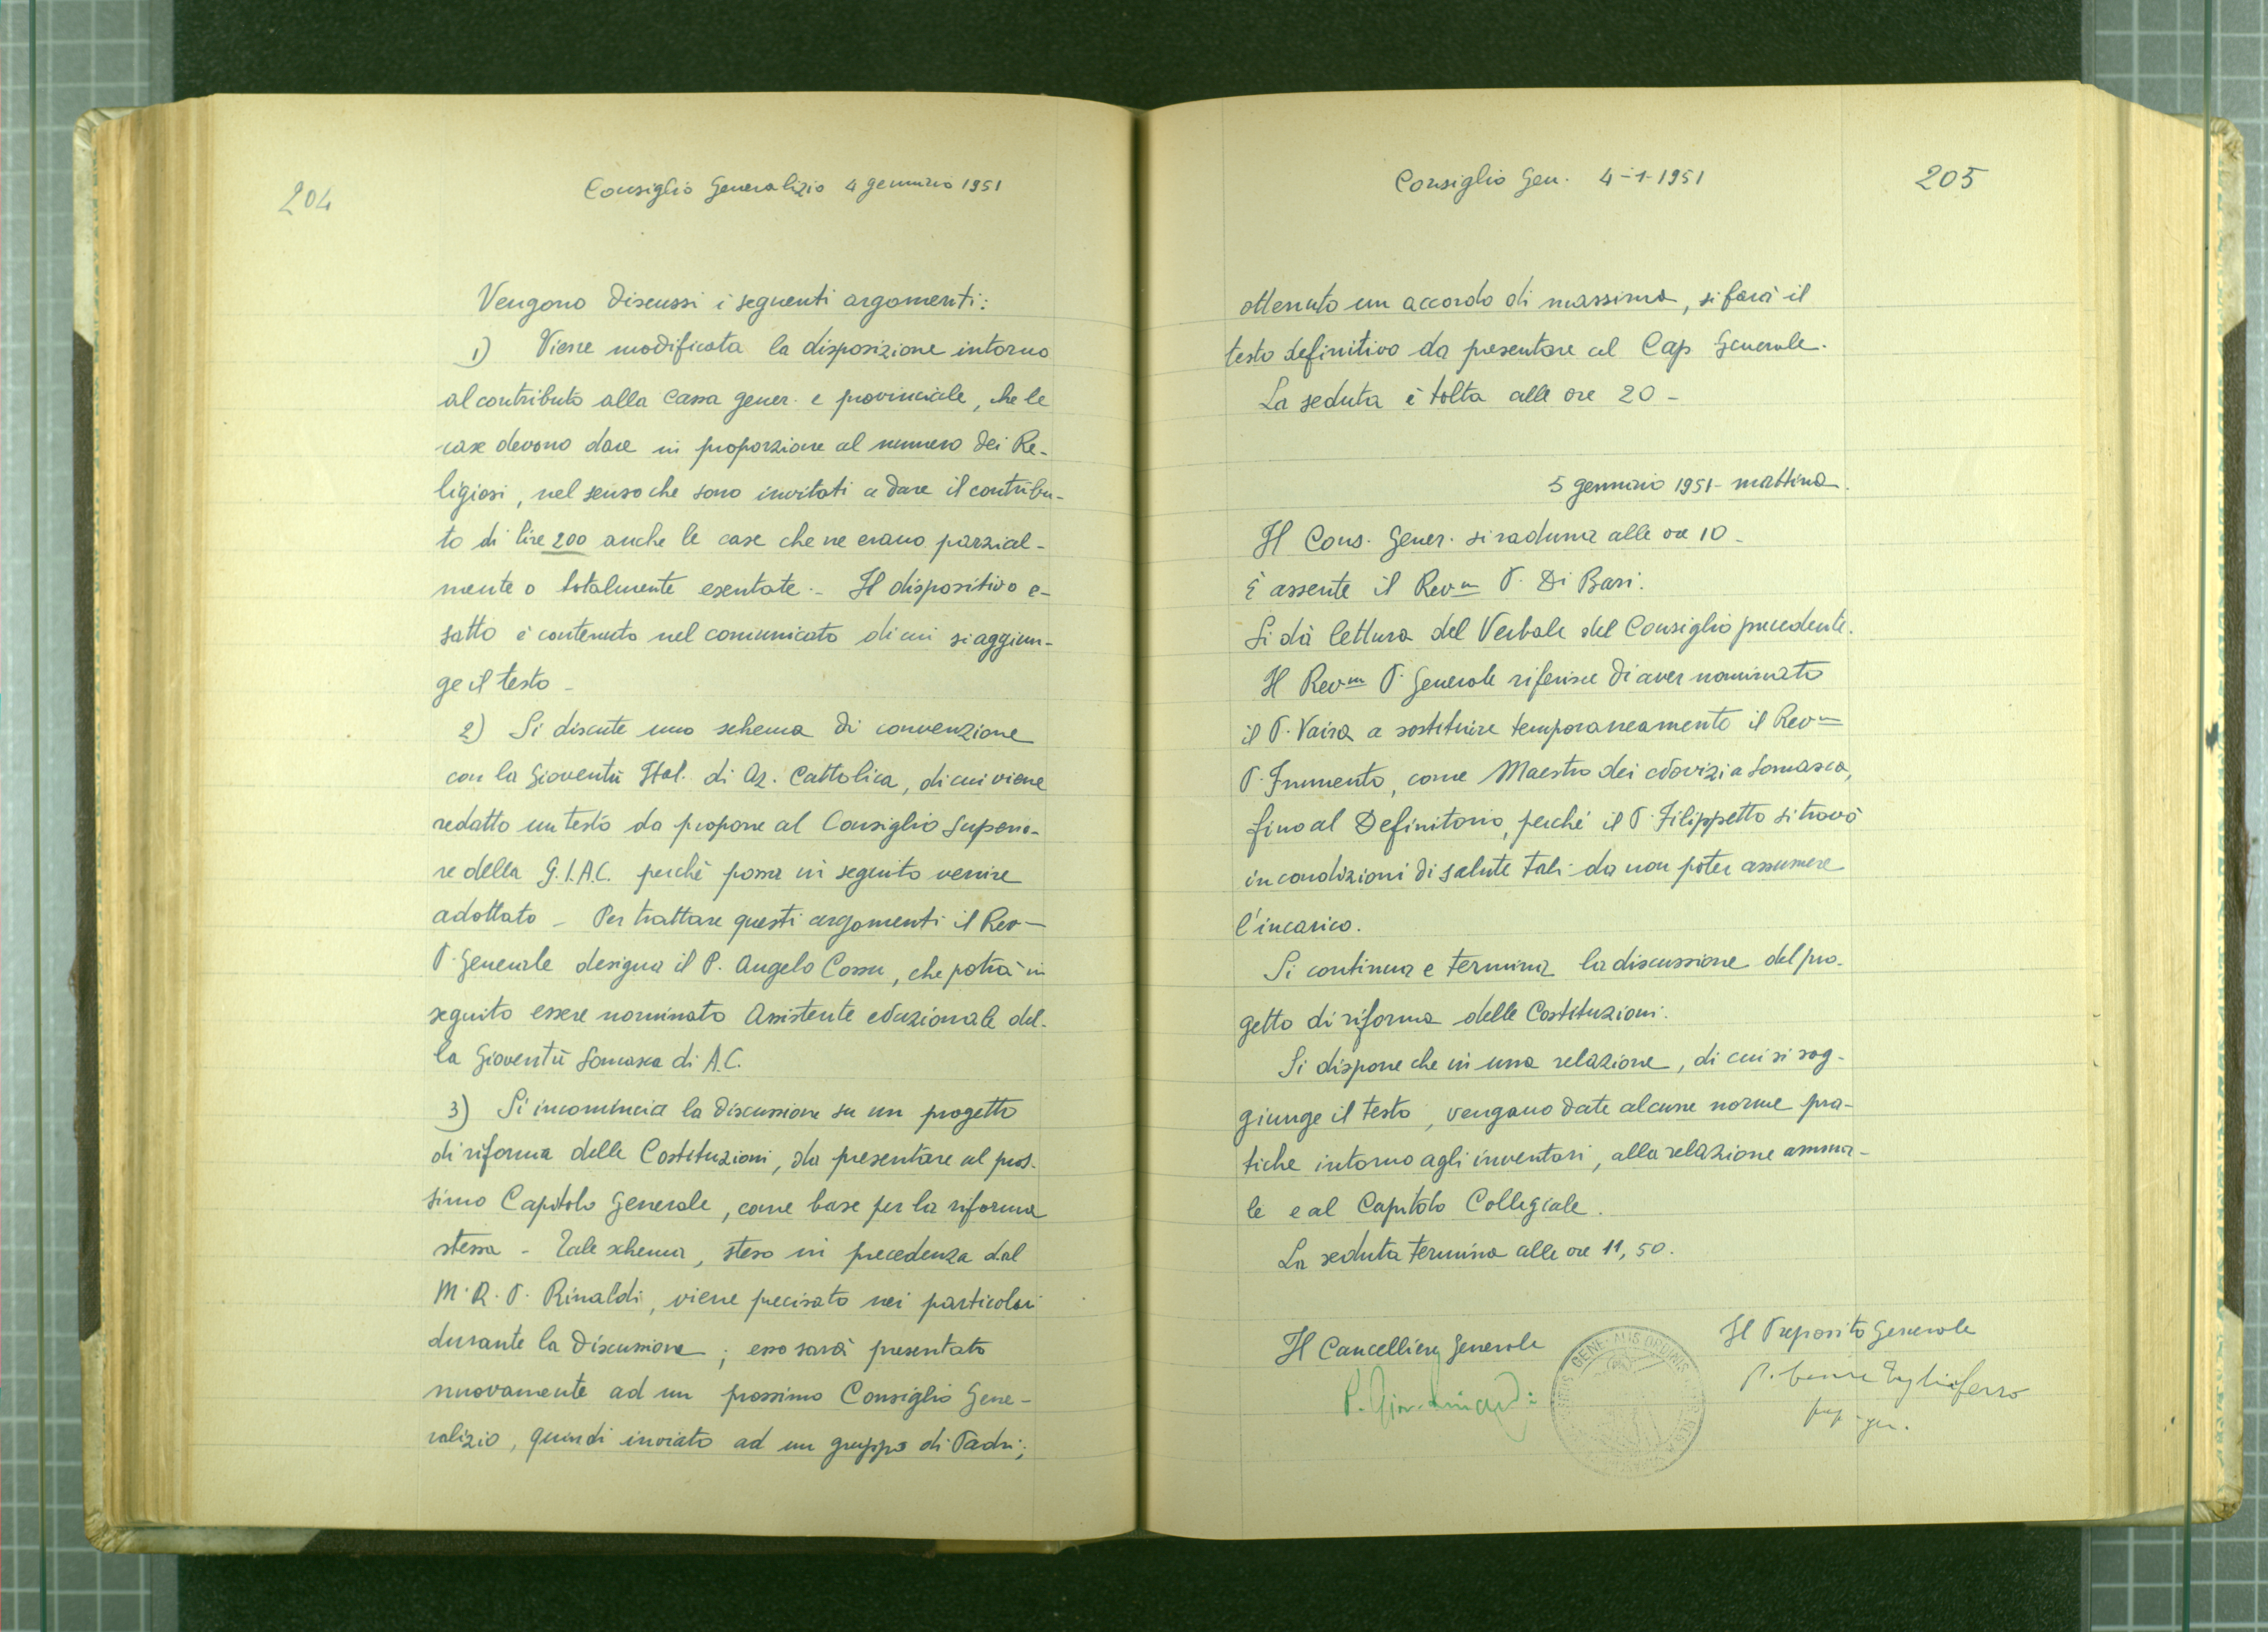 204
Consiglio Generalizio 4 gennaio 1951
Vengono discussi i seguenti argomenti:
1) Viene modificata la disposizione intorno
al contributo alla Cassa gener. e provinciale, che le
case devono dare in proporzione al numero dei Re-
ligiosi, nel senso che sono invitati a dare il contribu-
to di lire 200 anche le case che ne erano parzial-
mente o totalmente esentate. - Il dispositivo e-
satto è contenuto nel comunicato di cui si aggiun-
ge il testo -
2) Si discute uno schema di convenzione
con la Gioventù Ital. di Az. Cattolica, di cui viene
redatto un testo da proporre al Consiglio Superio-
re della G.I.A.C. perchè possa in seguito venire
adottato - Per trattare questi argomenti il Rev
P. Generale designa il P. Angelo Cossu, che potrà in
seguito essere nominato Assistente nazionale del-
la Gioventù Somasca di A.C.
3) Si incomincia la discussione su un progetto
di riforma delle Costituzioni, da presentare al pros-
simo Capitolo Generale, come base per la riforma
stessa - Tale schema, steso in precedenza dal
M.R.P. Rinaldi, viene precisato nei particolari
durante la discussione; esso sarà presentato
nuovamente ad un prossimo Consiglio Gene-
ralizio, quindi inviato ad un gruppo di Padri;
Consiglio Gen. 4-1-1951
205
ottenuto un accordo di massima, si farà il
testo definitivo da presentare al Cap Generale.
La seduta è tolta alle ore 20 -
5 gennaio 1951 - mattina.
Il Cons. Gener. si raduna alle ore 10 -
È assente il Rev.m P. Di Bari.
Si dà lettura del Verbale del Consiglio precedente.
Il Rev.m P. Generale riferisce di aver nominato
il P. Vaira a sostituire temporaneamente il Rev.m
P. Frumento, come Maestro dei Novizi a Somasca,
fino al Definitorio, perché il P. Filippetto si trovò
in condizioni di salute tali da non poter assumere
l'incarico.
Si continua e termina la discussione del pro-
getto di riforma delle Costituzioni.
Si dispone che in una relazione, di cui si sog-
giunge il testo, vengano date alcune norme pra-
tiche intorno agli inventari, alla relazione annua-
le e al Capitolo Collegiale.
La seduta termina alle ore 11,50.
Il Cancelliere Generale
Il Preposito Generale
P. Tagliaferro
GENERALIS ORDINIS